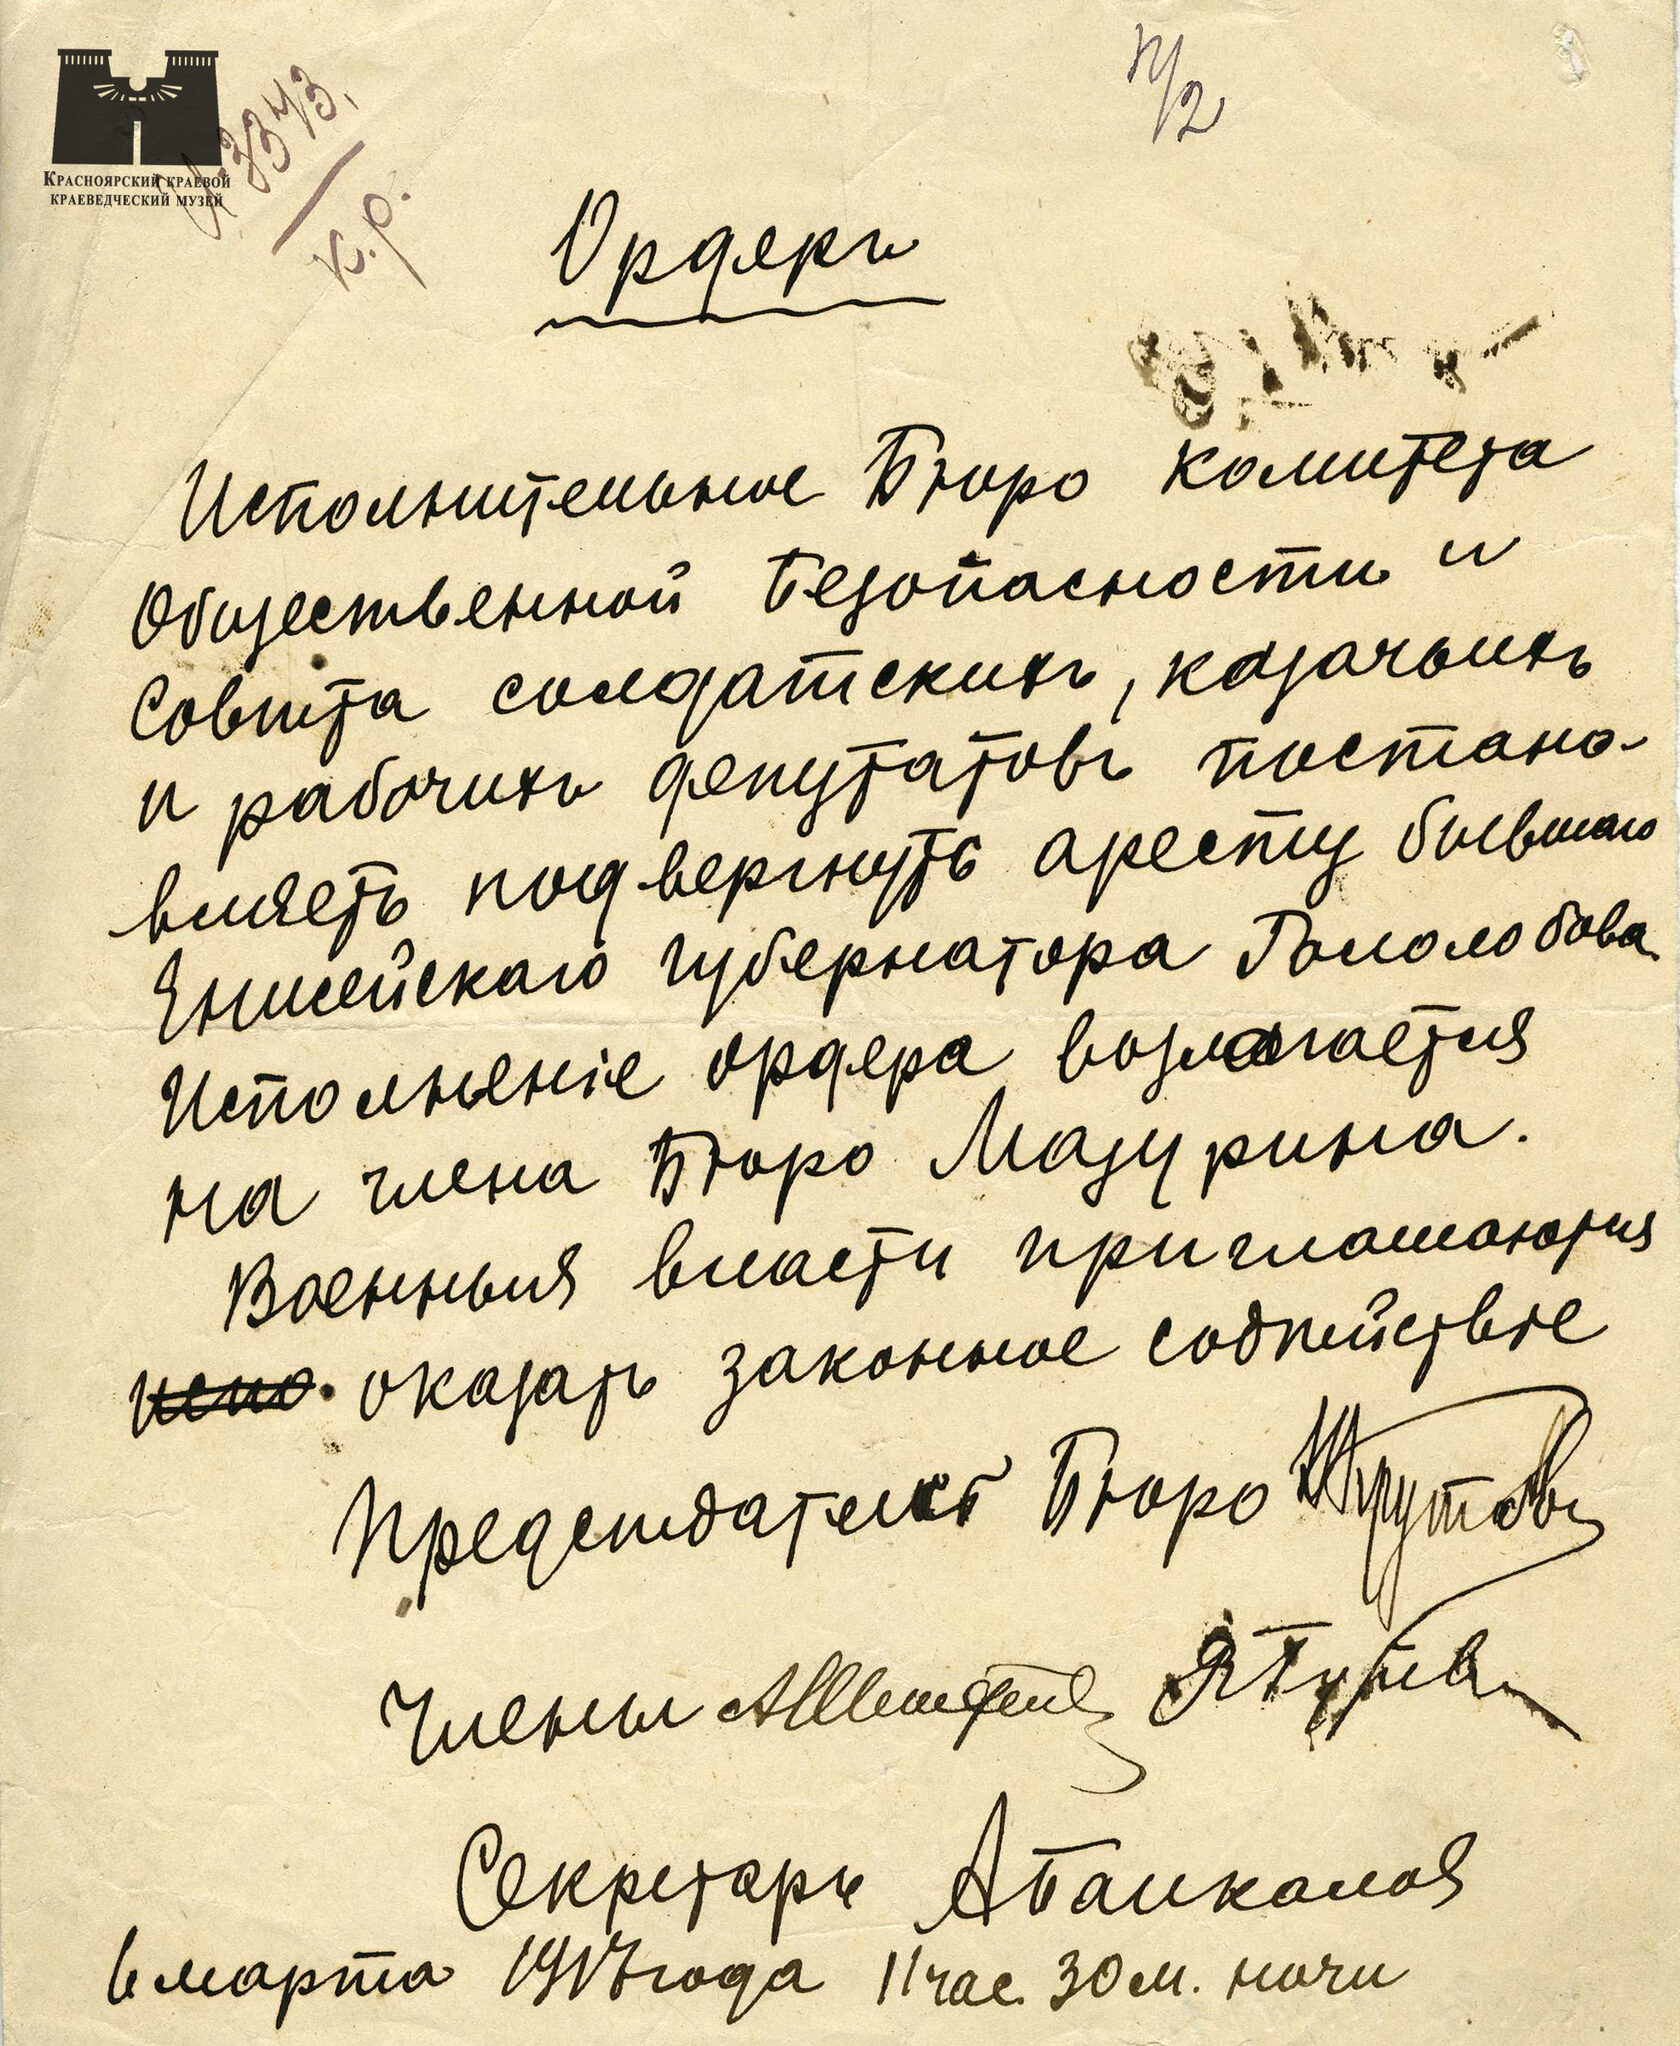 Красноярский краевой
краеведческий музей
к.р.
Ордеръ
Исполнительное Бюро комитета
Общественной Безопасности и
Совѣта солдатскихъ, казачьихъ
и рабочихъ депутатовъ постано-
вляетъ подвергнуть аресту бывшаго
Енисейскаго губернатора Гололобова
Исполненіе ордера возлагается
на члена Бюро Мазурина.
Военныя власти приглашаются
испо. оказать законное содѣйствіе
Предсѣдатель Бюро Крутовскій
Члены
Секретарь
6 марта 1917 года 11 час. 30 м. ночи